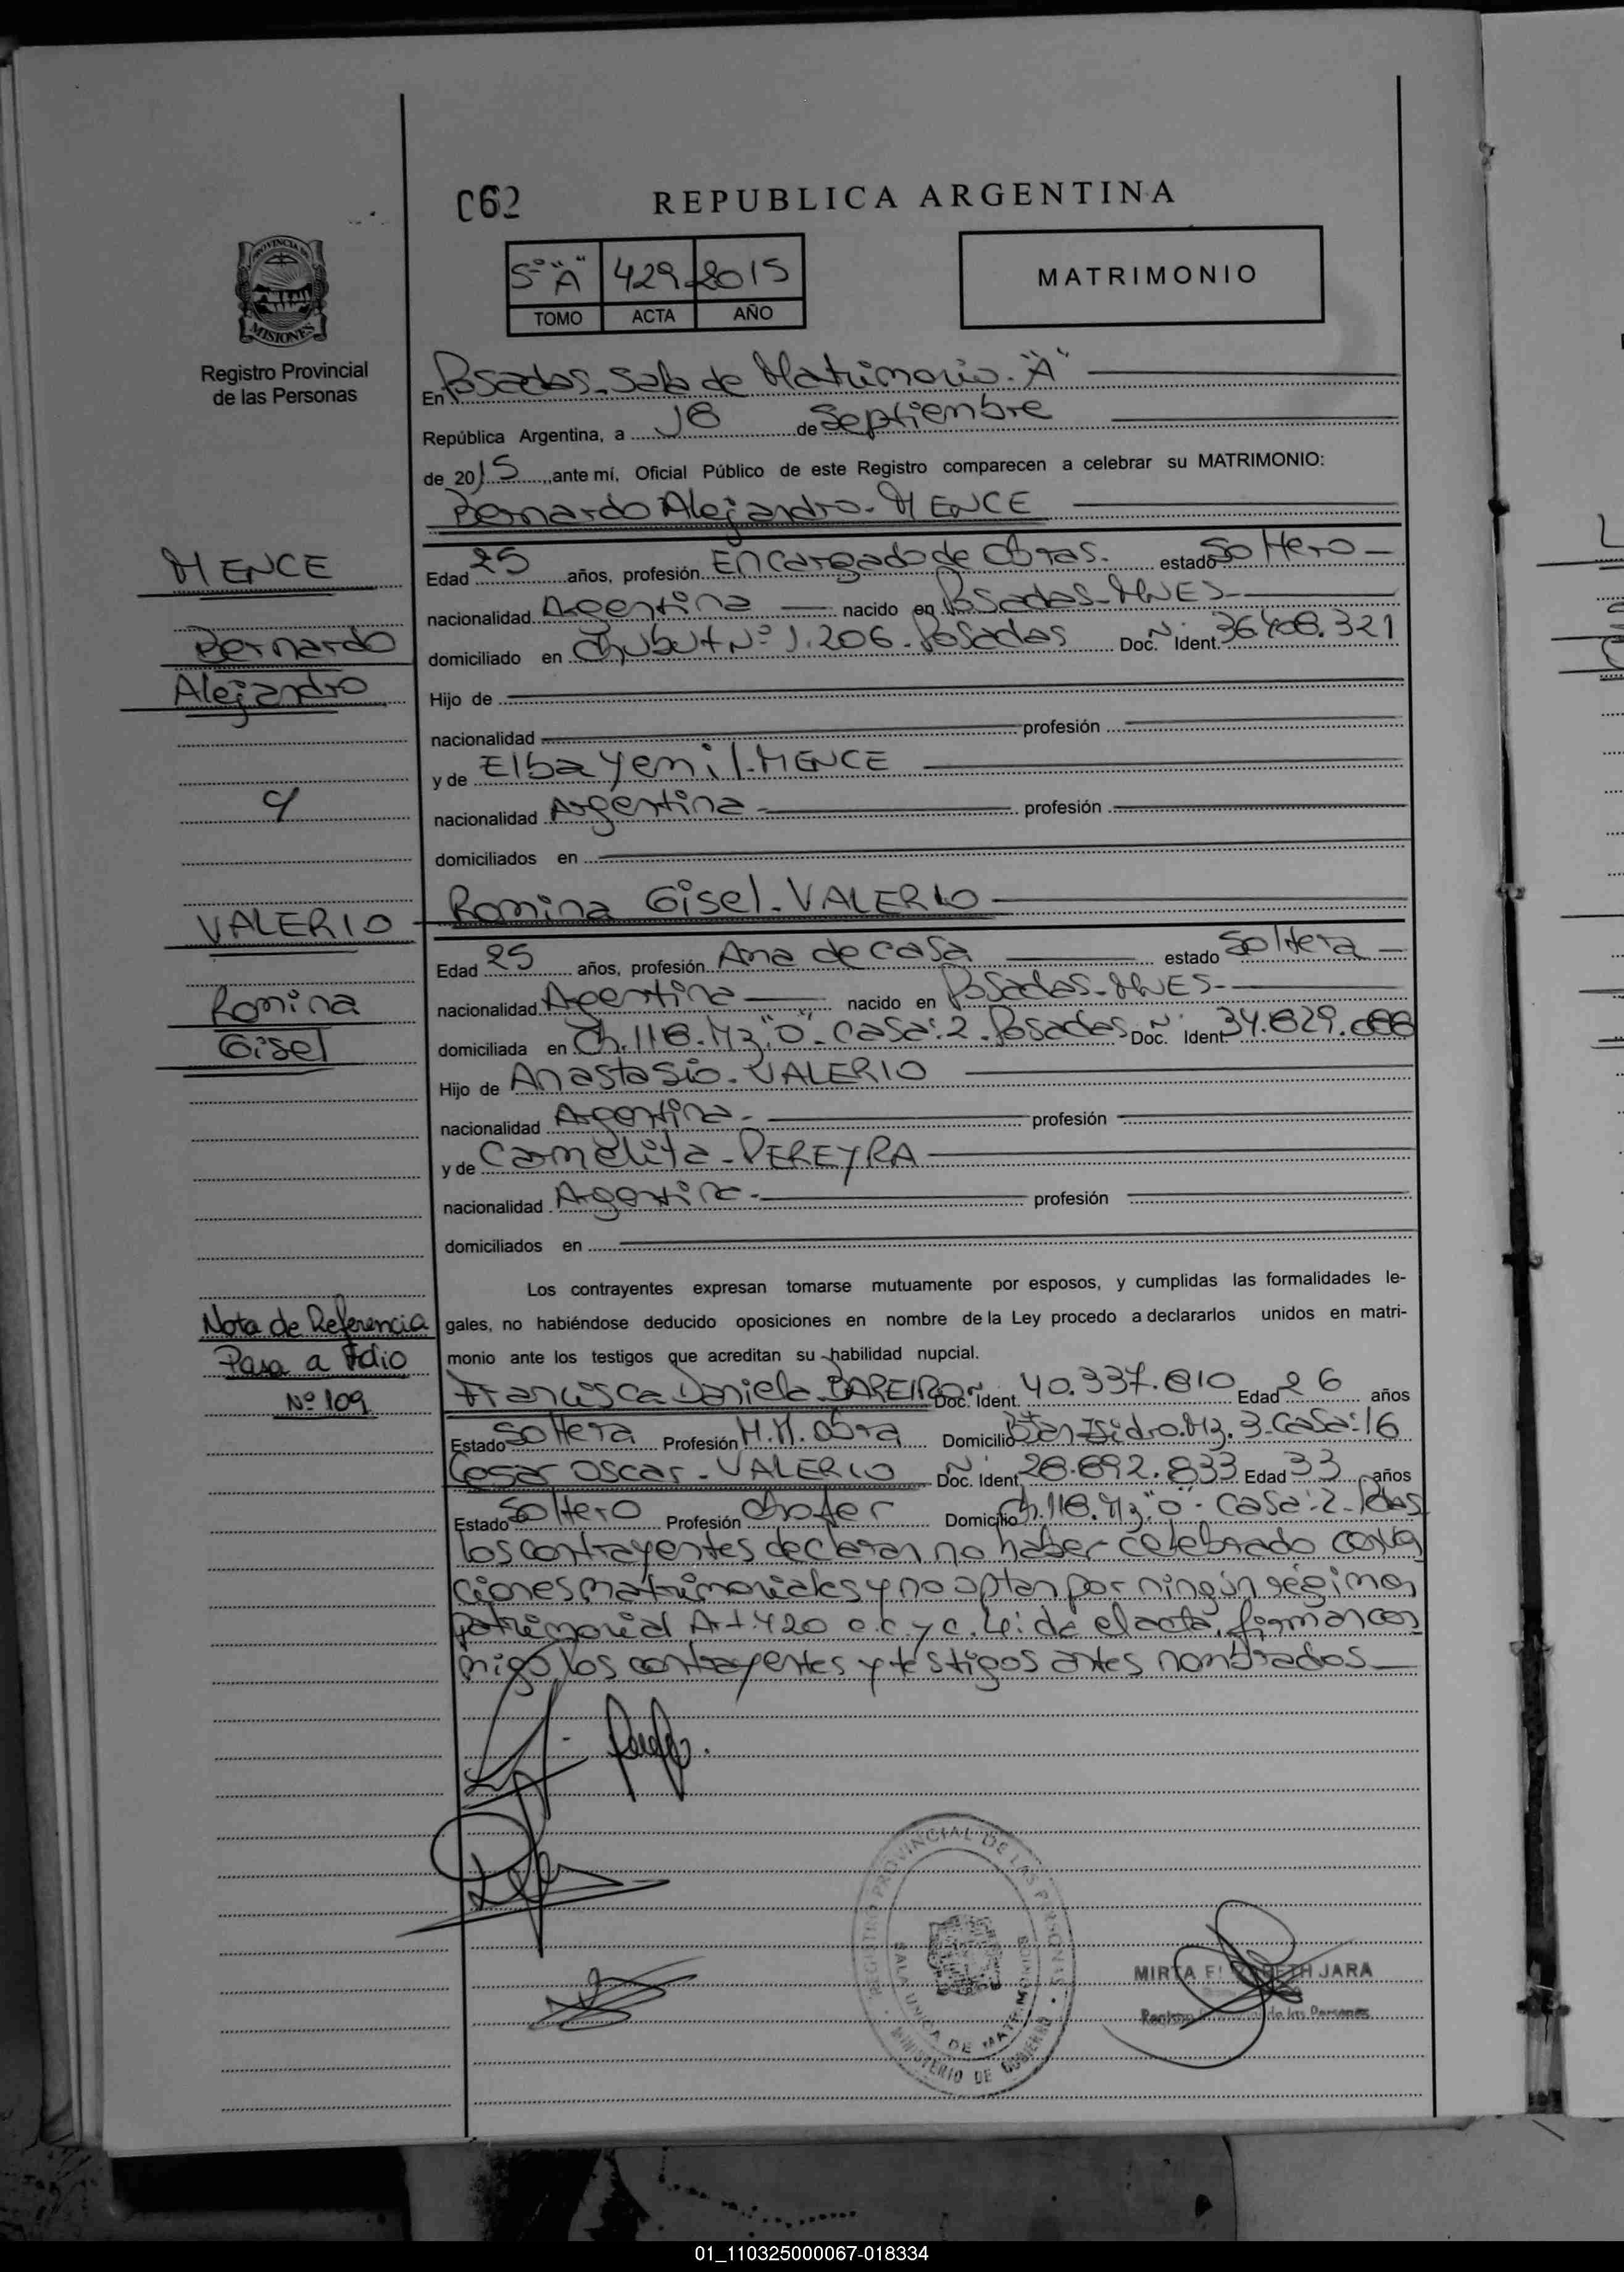 C62
REPUBLICA ARGENTINA
PROVINCIA DE
MISIONES
Registro Provincial
de las Personas
5º "A" 429 2015
TOMO ACTA AÑO
MATRIMONIO
En Posadas - Sala de Matrimonio - "A"
República Argentina, a 18 de Septiembre
de 2015, ante mí, Oficial Público de este Registro comparecen a celebrar su MATRIMONIO:
Bernardo Alejandro - MENCE
MENCE
Edad 25 años, profesión Encargado de Obras. estado Soltero
nacionalidad Argentina nacido en Posadas - MNES -
Bernardo
domiciliado en Chubut Nº 1.206 - Posadas Doc. N. Ident. 36.408.321
Alejandro
Hijo de
nacionalidad profesión
y de Elba Yemil - MENCE
y
nacionalidad Argentina - profesión
domiciliados en
Romina Gisel - VALERIO
VALERIO
Edad 25 años, profesión Ama de casa estado Soltera
nacionalidad Argentina nacido en Posadas - MNES -
Romina
domiciliada en Ch. 118. Mz. "O" - Casa: 2 - Posadas Doc. N. Ident. 34.829.
Gisel
Hijo de Anastasio - VALERIO
nacionalidad Argentina - profesión
y de Carmelita - PEREYRA
nacionalidad Argentina - profesión
domiciliados en
Los contrayentes expresan tomarse mutuamente por esposos, y cumplidas las formalidades le-
gales, no habiéndose deducido oposiciones en nombre de la Ley procedo a declararlos unidos en matri-
monio ante los testigos que acreditan su habilidad nupcial.
Nota de Referencia
Pasa a Folio
Nº 109
Francisca Daniela - BAREIRO Doc. N. Ident. 40.337.810 Edad 26 años
Estado Soltera Profesión M.M. Obra Domicilio Isidro. Mz. 3 - Casa: 16
Cesar Oscar - VALERIO Doc. N. Ident. 28.692.833 Edad 33 años
Estado Soltero Profesión Chofer Domicilio Ch. 118. Mz. "O" - Casa: 2 - Pdas
los contrayentes declaran no haber celebrado conven
ciones matrimoniales y no optan por ningún régimen
patrimonial Art. 420 c.c. y c. Leída el acta, firman con
migo, los contrayentes y testigos antes nombrados
REGISTRO PROVINCIAL DE LAS PERSONAS
SALA UNICA DE MATRIMONIOS
MINISTERIO DE GOBIERNO
MIRTA ELIZABETH JARA
Registro de las Personas
01_110325000067-018334